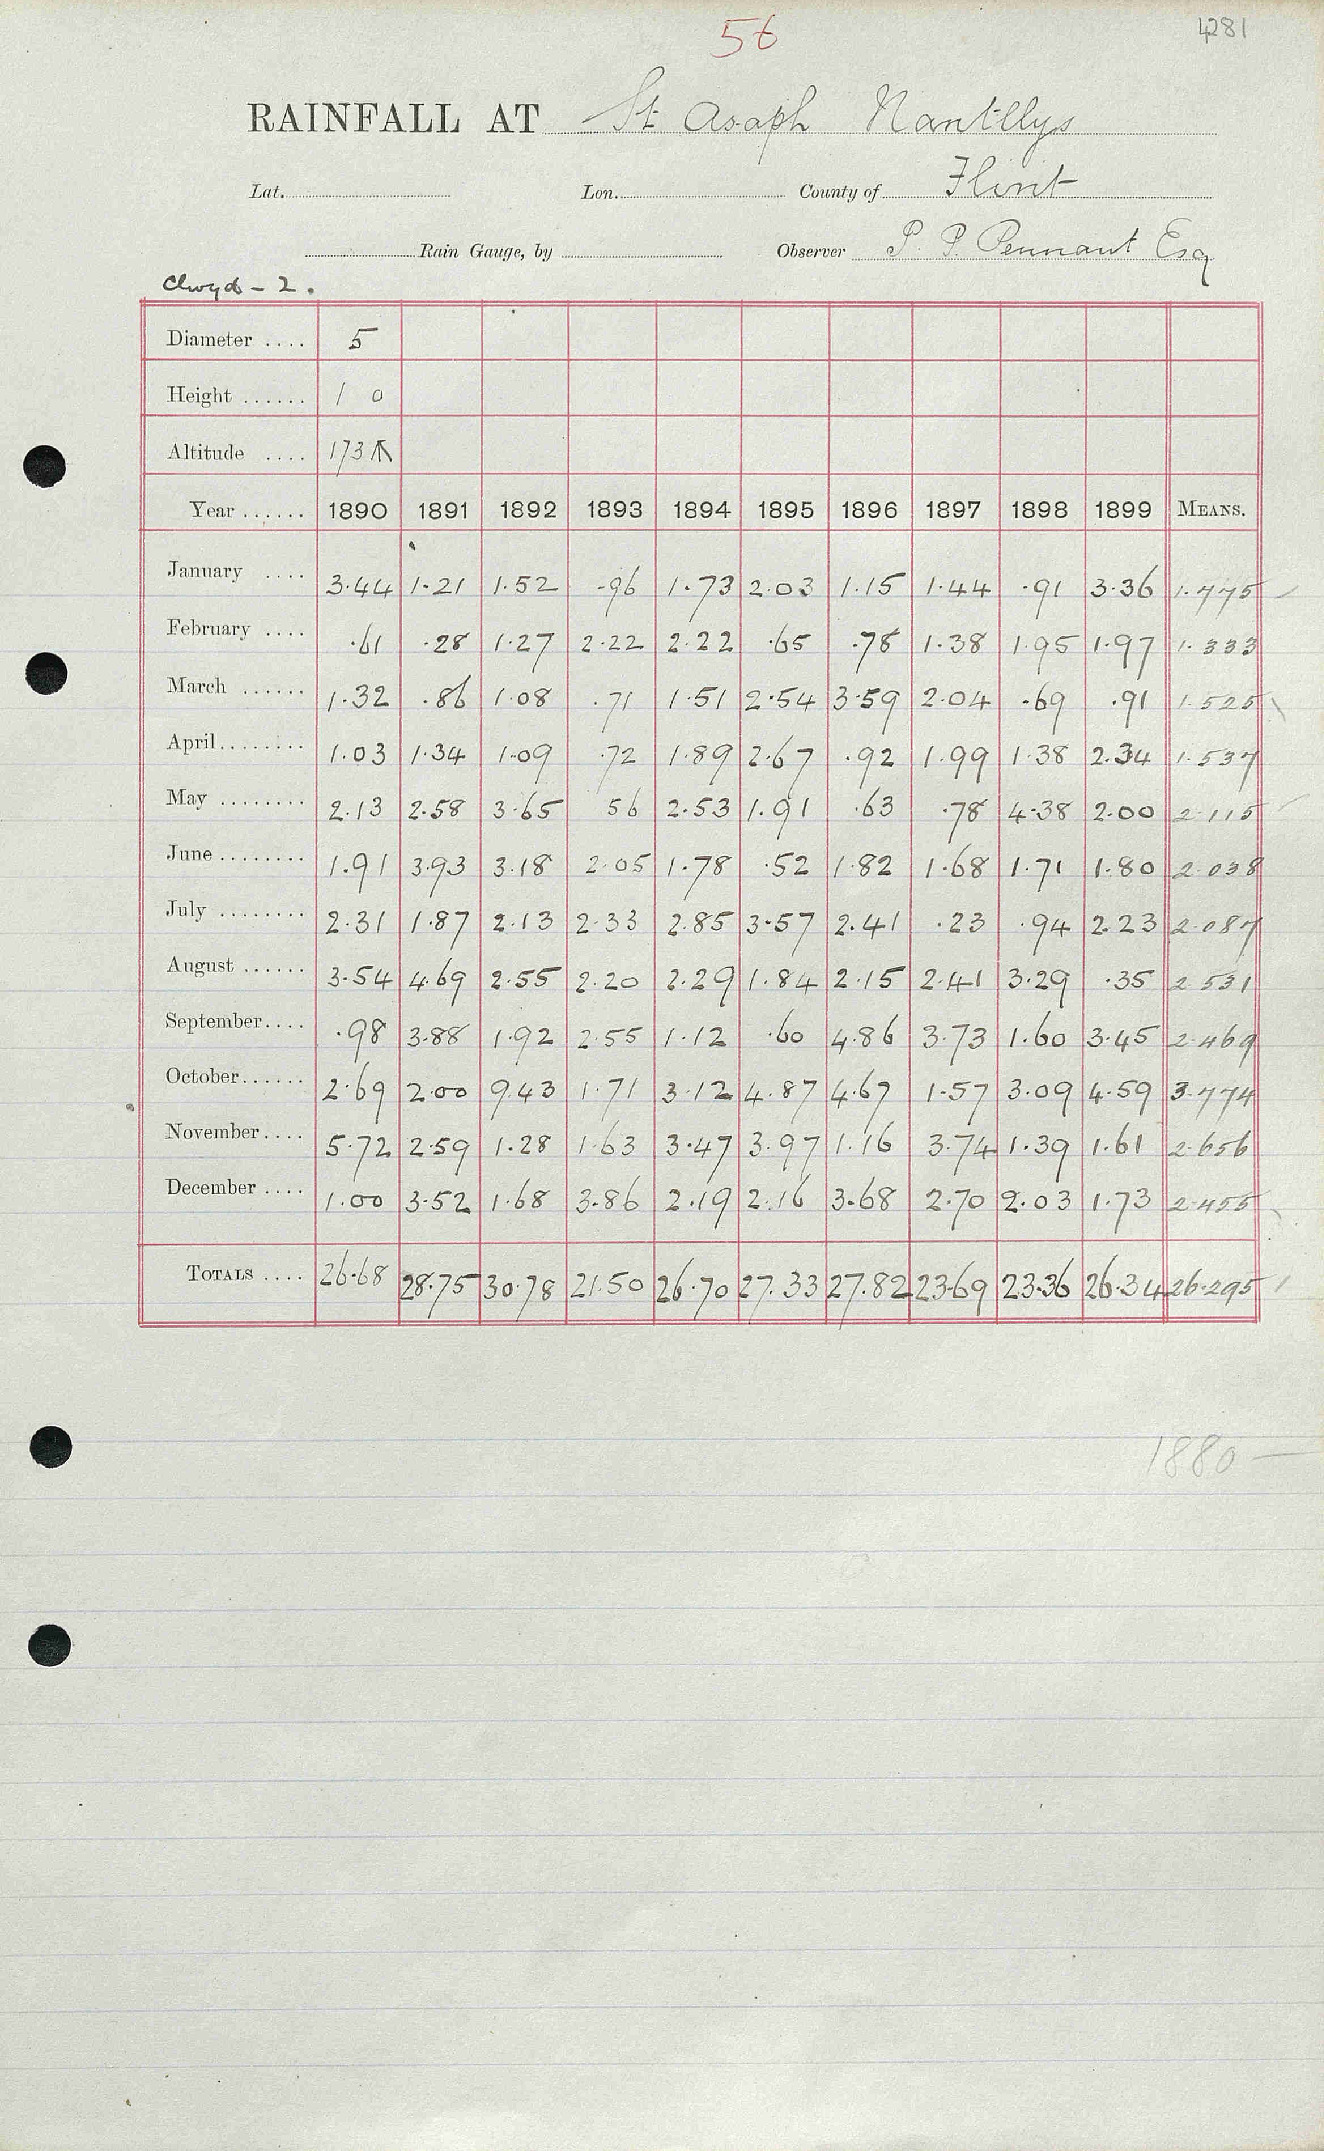 56
4281
RAINFALL AT St Asaph Nantllys
Lat. Lon. County of Flint
Rain Gauge, by Observer P. P. Pennant Esq
Clwyd - 2.
Diameter .... 5
Height ...... 1 0
Altitude .... 173
Year ...... 1890 1891 1892 1893 1894 1895 1896 1897 1898 1899 MEANS.
January .... 3.44 1.21 1.52 .96 1.73 2.03 1.15 1.44 .91 3.36 1.775
February .... .61 .28 1.27 2.22 2.22 .65 .78 1.38 1.95 1.97 1.333
March ...... 1.32 .86 1.08 .71 1.51 2.54 3.59 2.04 .69 .91 1.525
April ........ 1.03 1.34 1.09 .72 1.89 2.67 .92 1.99 1.38 2.34 1.537
May ........ 2.13 2.58 3.65 56 2.53 1.91 .63 .78 4.38 2.00 2.115
June ........ 1.91 3.93 3.18 2.05 1.78 .52 1.82 1.68 1.71 1.80 2.038
July ........ 2.31 1.87 2.13 2.33 2.85 3.57 2.41 .23 .94 2.23 2.087
August ...... 3.54 4.69 2.55 2.20 2.29 1.84 2.15 2.41 3.29 .35 2.531
September .... .98 3.88 1.92 2.55 1.12 .60 4.86 3.73 1.60 3.45 2.469
October ...... 2.69 2.00 9.43 1.71 3.12 4.87 4.67 1.57 3.09 4.59 3.774
November .... 5.72 2.59 1.28 1.63 3.47 3.97 1.16 3.74 1.39 1.61 2.656
December .... 1.00 3.52 1.68 3.86 2.19 2.16 3.68 2.70 2.03 1.73 2.455
TOTALS .... 26.68 28.75 30.78 21.50 26.70 27.33 27.82 23.69 23.36 26.34 26.295
1880 —